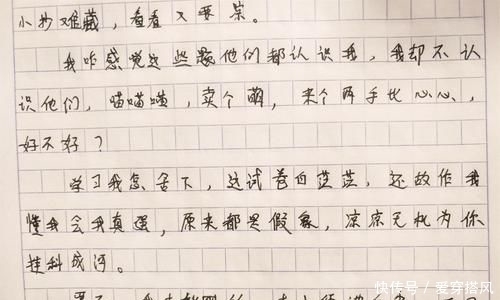 小抄难藏，看看又要呆。
我咋感觉这些题他们都认识我，我却不认
识他们，喵喵噗，卖个萌，来个两手比心心，
好不好？
学习我怎舍下，这试卷白茫茫，还故作我
懂我会我真强，原来都是假象，凉凉无机为你
挂科成河。
快传号／爱穿搭风